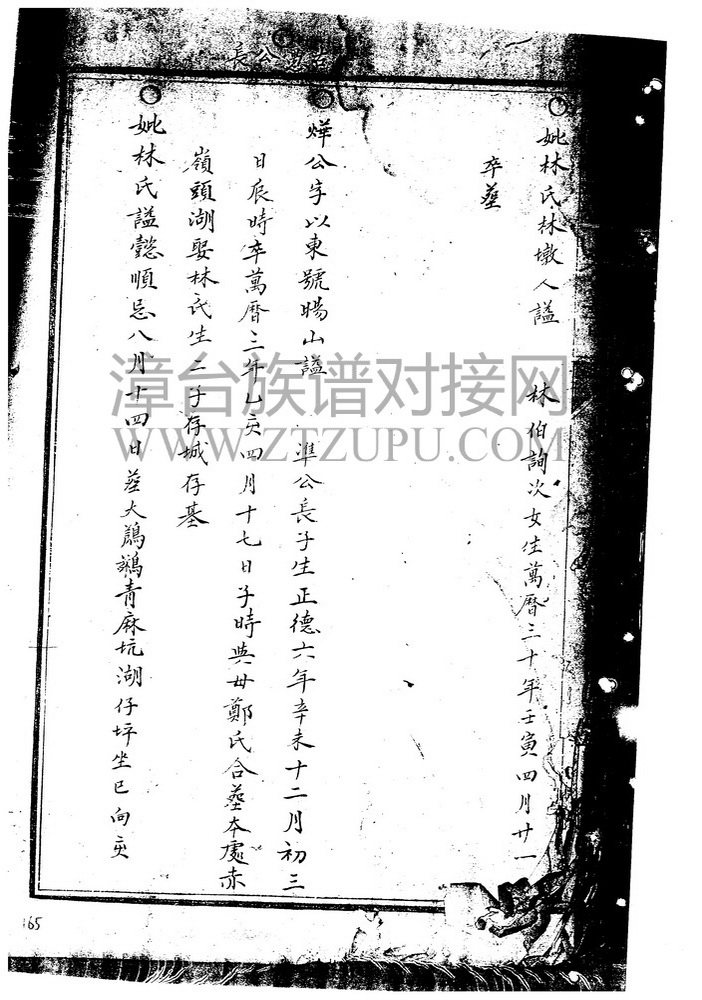 長公
妣林氏林墩人謚　　林伯詢次女生萬曆三十年壬寅四月廿一
卒葬
燁公字以東號暘山謚　　準公長子生正德六年辛未十二月初三
日辰時卒萬曆三年乙亥四月十七日子時與母鄭氏合葬本處赤
嶺頭湖娶林氏生二子存城存基
妣林氏謚懿順忌八月十四日葬大鷓鷀青麻坑湖仔坪坐巳向亥
漳台族谱对接网
WWW.ZTZUPU.COM
165